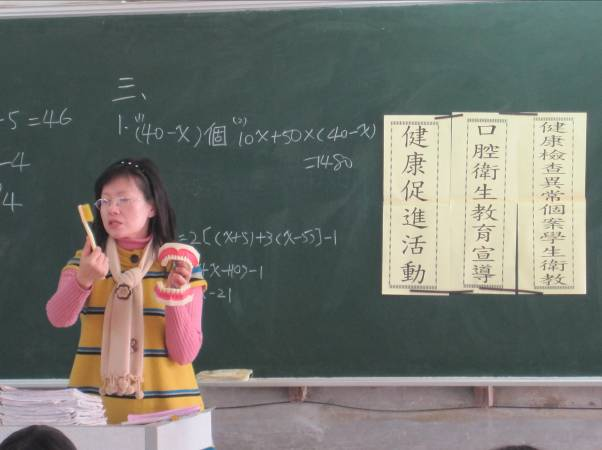 三、
1. (1) (40-x)個 (2) 10x+50×(40-x)
=1480
-5=46
-4
4
=2[(x+5)+3(x-55)]-1
x-110)-1
-21
健康促進活動
口腔衛生教育宣導
健康檢查異常個案學生衛教